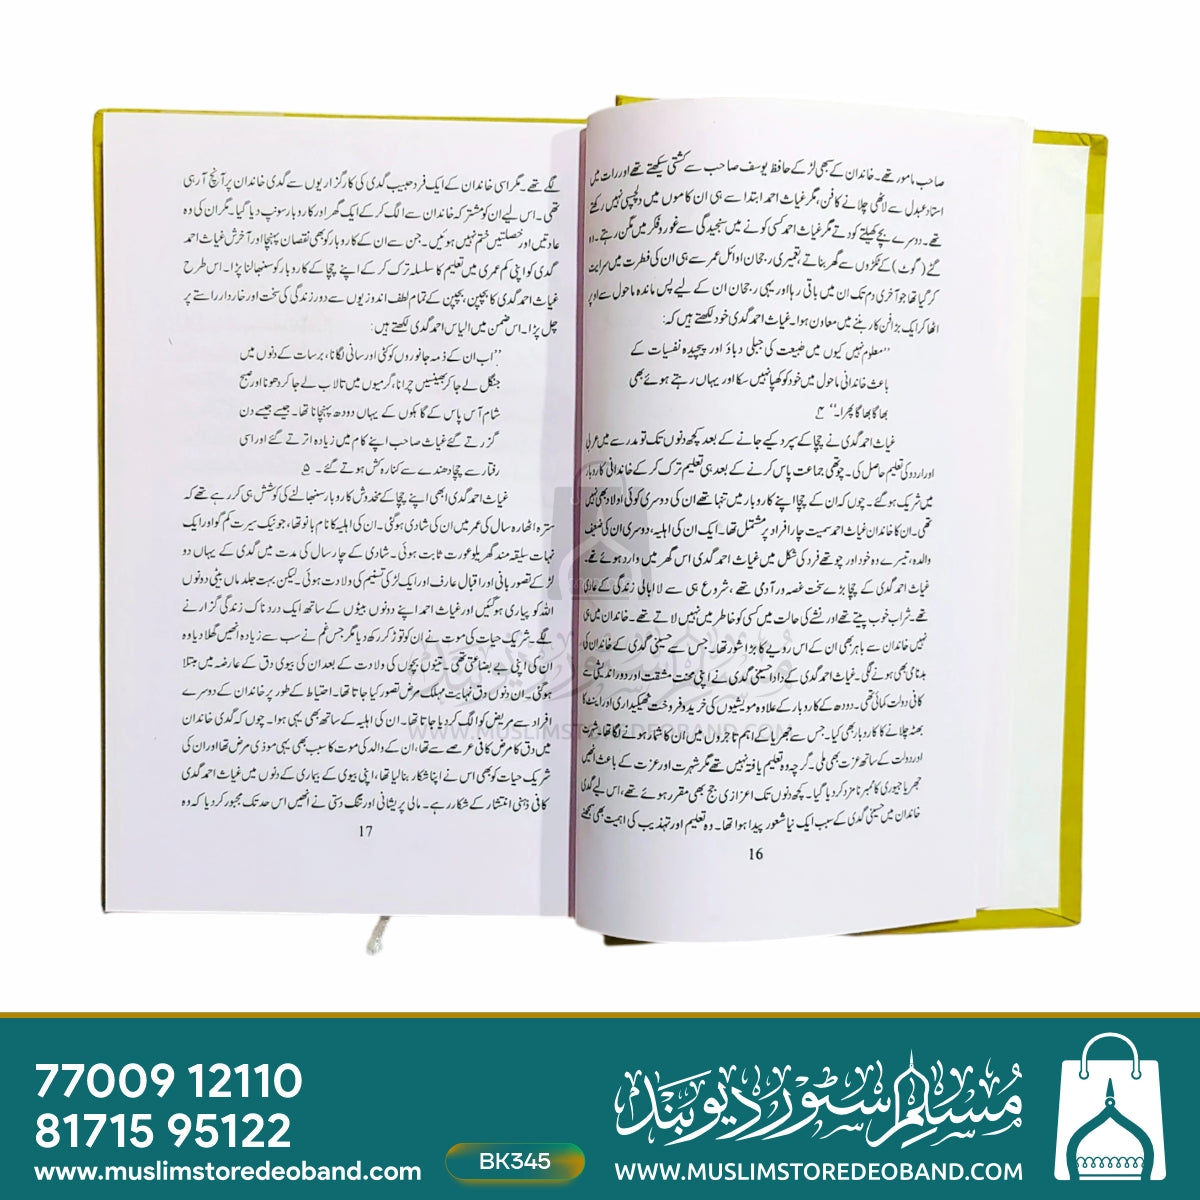 صاحب مامور تھے۔ خاندان کے سبھی لڑکے حافظ یوسف صاحب سے کشتی سیکھتے تھے اور رات میں
استاد عبدل سے لاٹھی چلانے کا فن، مگر غیاث احمد ابتدا سے ہی ان کاموں میں دلچسپی نہیں رکھتے
تھے۔ دوسرے بچے کھیلتے کودتے مگر غیاث احمد کسی کونے میں سنجیدگی سے غور و فکر میں مگن رہتے۔ وہ
گئے (گوٹ) کے ٹکڑوں سے گھر بناتے، تعمیری رجحان اوائل عمر سے ہی ان کی فطرت میں سرایت
کر گیا تھا جو آخری دم تک ان میں باقی رہا اور یہی رجحان ان کے لیے پس ماندہ ماحول سے اوپر
اٹھا کر ایک بڑا فن کار بننے میں معاون ہوا۔ غیاث احمد گدی خود لکھتے ہیں کہ:
''معلوم نہیں کیوں میں طبیعت کی جبلی دباؤ اور پیچیدہ نفسیات کے
باعث خاندانی ماحول میں خود کو کھپا نہیں سکا اور یہاں رہتے ہوئے بھی
بھاگا بھاگا پھرا۔'' ۴
غیاث احمد گدی نے چچا کے سپرد کیے جانے کے بعد کچھ دنوں تک تو مدرسے میں عربی
اور اردو کی تعلیم حاصل کی۔ چوتھی جماعت پاس کرنے کے بعد ہی تعلیم ترک کر کے خاندانی کاروبار
میں شریک ہو گئے۔ چوں کہ ان کے چچا اپنے کاروبار میں تنہا تھے ان کی دوسری کوئی اولاد بھی نہیں
تھی۔ ان کا خاندان غیاث احمد سمیت چار افراد پر مشتمل تھا۔ ایک ان کی اہلیہ، دوسری ان کی ضعیف
والدہ، تیسرے وہ خود اور چوتھے فرد کی شکل میں غیاث احمد گدی اس گھر میں وارد ہوئے تھے۔
غیاث احمد گدی کے چچا بڑے سخت غصہ ور آدمی تھے، شروع ہی سے لا ابالی زندگی کے عادی
تھے۔ شراب خوب پیتے تھے اور نشے کی حالت میں کسی کو خاطر میں نہیں لاتے تھے۔ خاندان میں ہی
نہیں خاندان سے باہر بھی ان کے اس رویے کا بڑا شور تھا۔ جس سے حسینی گدی کے خاندان کی
بدنامی بھی ہونے لگی۔ غیاث احمد گدی کے دادا حسینی گدی نے اپنی محنت مشقت اور دور اندیشی سے
کافی دولت کمائی تھی۔ دودھ کے کاروبار کے علاوہ مویشیوں کی خرید و فروخت ٹھیکیداری اور اینٹ کا
بھٹہ چلانے کا کاروبار بھی کیا۔ جس سے جھریا کے اہم تاجروں میں ان کا شمار ہونے لگا تھا۔ شہرت
اور دولت کے ساتھ عزت بھی ملی۔ گرچہ وہ تعلیم یافتہ نہیں تھے مگر شہرت اور عزت کے باعث انہیں
جھریا جیوری کا ممبر نامزد کر دیا گیا۔ کچھ دنوں تک اعزازی جج بھی مقرر ہوئے تھے، اس لیے گدی
خاندان میں حسینی گدی کے سبب ایک نیا شعور پیدا ہوا تھا۔ وہ تعلیم اور تہذیب کی اہمیت بھی سمجھنے
16
لگے تھے۔ مگر اسی خاندان کے ایک فرد حبیب گدی کی کارگزاریوں سے گدی خاندان پر آنچ آ رہی
تھی۔ اس لیے ان کو مشترکہ خاندان سے الگ کر کے ایک گھر اور کاروبار سونپ دیا گیا۔ مگر ان کی وہ
عادتیں اور خصلتیں ختم نہیں ہوئیں۔ جن سے ان کے کاروبار کو بھی نقصان پہنچا اور آخرش غیاث احمد
گدی کو اپنی کم عمری میں تعلیم کا سلسلہ ترک کر کے اپنے چچا کے کاروبار کو سنبھالنا پڑا۔ اس طرح
غیاث احمد گدی کا بچپن، بچپن کے تمام لطف اندوزیوں سے دور زندگی کی سخت اور خاردار راستے پر
چل پڑا۔ اس ضمن میں الیاس احمد گدی لکھتے ہیں:
''اب ان کے ذمہ جانوروں کو کٹی اور سانی لگانا، برسات کے دنوں میں
جنگل لے جا کر بھینسیں چرانا، گرمیوں میں تالاب لے جا کر دھونا اور صبح
شام آس پاس کے گاہکوں کے یہاں دودھ پہنچانا تھا۔ جیسے جیسے دن
گزرتے گئے غیاث صاحب اپنے کام میں زیادہ اترتے گئے اور اسی
رفتار سے چچا دھندے سے کنارہ کش ہوتے گئے۔ ۵
غیاث احمد گدی ابھی اپنے چچا کے مخدوش کاروبار سنبھالنے کی کوشش ہی کر رہے تھے کہ
سترہ اٹھارہ سال کی عمر میں ان کی شادی ہو گئی۔ ان کی اہلیہ کا نام بانو تھا، جو نیک سیرت کم گو اور ایک
نہات سلیقہ مند گھریلو عورت ثابت ہوئی۔ شادی کے چار سال کی مدت میں گدی کے یہاں دو
لڑکے تصور بانی اور اقبال عارف اور ایک لڑکی تسنیم کی ولادت ہوئی۔ لیکن بہت جلد ماں بیٹی دونوں
اللہ کو پیاری ہو گئیں اور غیاث احمد اپنے دونوں بیٹوں کے ساتھ ایک دردناک زندگی گزارنے
لگے۔ شریک حیات کی موت نے ان کو توڑ کر رکھ دیا مگر جس غم نے سب سے زیادہ انھیں گھلا دیا وہ
ان کی اپنی بے بضاعتی تھی۔ تینوں بچوں کی ولادت کے بعد ان کی بیوی دق کے عارضہ میں مبتلا
ہو گئی۔ ان دنوں دق نہایت مہلک مرض تصور کیا جاتا تھا۔ احتیاط کے طور پر خاندان کے دوسرے
افراد سے مریض کو الگ کر دیا جاتا تھا۔ ان کی اہلیہ کے ساتھ بھی یہی ہوا۔ چوں کہ گدی خاندان
میں دق کا مرض کافی عرصے سے تھا، ان کے والد کی موت کا سبب بھی یہی موذی مرض تھا اور ان کی
شریک حیات کو بھی اس نے اپنا شکار بنا لیا تھا، اپنی بیوی کے بیماری کے دنوں میں غیاث احمد گدی
کافی ذہنی انتشار کے شکار رہے۔ مالی پریشانی اور تنگ دستی نے انھیں اس حد تک مجبور کر دیا کہ وہ
17
مسلم سٹور دیوبند
WWW.MUSLIMSTOREDEOBAND.COM
77009 12110
81715 95122
www.muslimstoredeoband.com
BK345
مسلم سٹور دیوبند
WWW.MUSLIMSTOREDEOBAND.COM